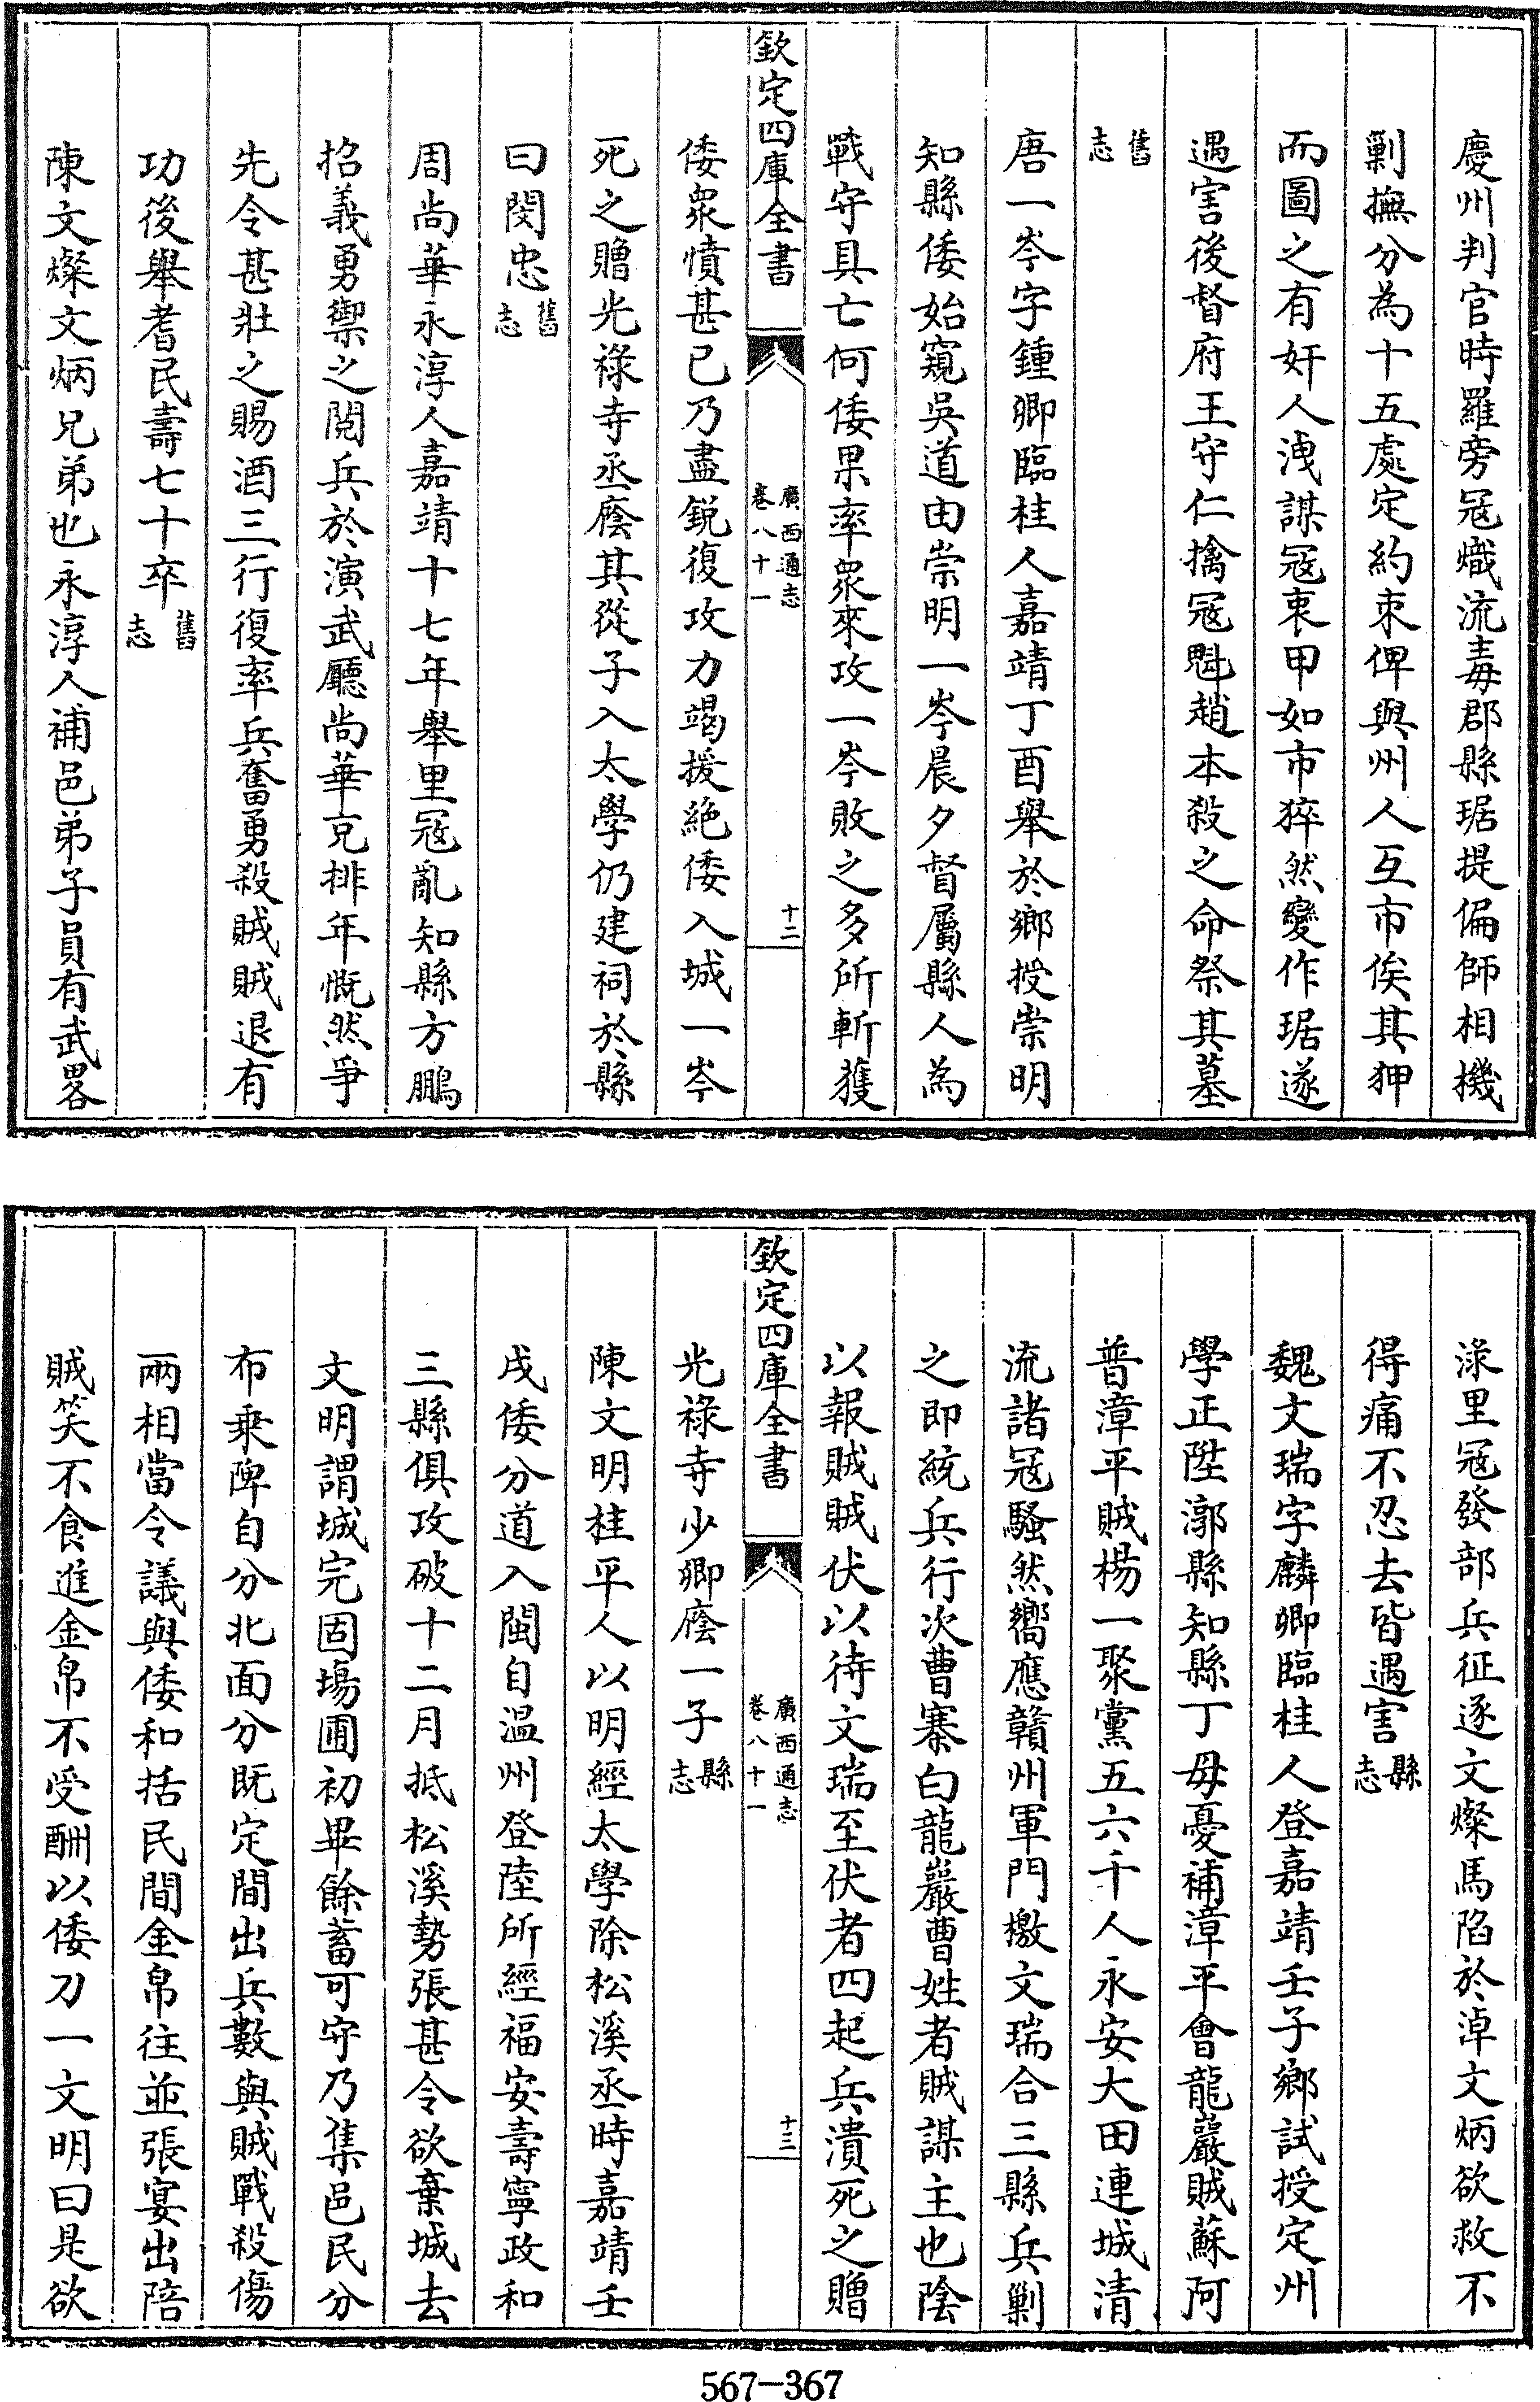 慶州判官時羅旁冦熾流毒郡縣琚提偏師相機
剿撫分為十五處定約束俾與州人互市俟其狎
而圖之有奸人洩謀冦衷甲如市猝然變作琚遂
遇害後督府王守仁擒冦魁趙本殺之命祭其墓
舊志
唐一岑字鍾卿臨桂人嘉靖丁酉舉於鄉授崇明
知縣倭始窺吳道由崇明一岑晨夕督屬縣人為
戰守具亡何倭果率衆來攻一岑敗之多所斬獲
欽定四庫全書
廣西通志
卷八十一
十二
倭衆憤甚已乃盡鋭復攻力竭援絶倭入城一岑
死之贈光祿寺丞廕其從子入太學仍建祠於縣
曰閔忠舊志
周尚華永淳人嘉靖十七年舉里冦亂知縣方鵬
招義勇禦之閲兵於演武廳尚華充排年慨然爭
先令甚壯之賜酒三行復率兵奮勇殺賊賊退有
功後舉耆民壽七十卒舊志
陳文燦文炳兄弟也永淳人補邑弟子員有武畧
淥里冦發部兵征遂文燦馬陷於淖文炳欲救不
得痛不忍去皆遇害縣志
魏文瑞字麟卿臨桂人登嘉靖壬子鄉試授定州
學正陞漷縣知縣丁母憂補漳平會龍巖賊蘇阿
普漳平賊楊一聚黨五六千人永安大田連城清
流諸冦騷然嚮應贛州軍門檄文瑞合三縣兵剿
之即統兵行次曹寨白龍巖曹姓者賊謀主也陰
以報賊賊伏以待文瑞至伏者四起兵潰死之贈
欽定四庫全書
廣西通志
卷八十一
十三
光祿寺少卿廕一子縣志
陳文明桂平人以明經太學除松溪丞時嘉靖壬
戌倭分道入閩自温州登陸所經福安壽寧政和
三縣俱攻破十二月抵松溪勢張甚令欲棄城去
文明謂城完固場圃初畢餘蓄可守乃集邑民分
布乘陴自分北面分既定間出兵數與賊戰殺傷
兩相當令議與倭和括民間金帛往並張宴出陪
賊笑不食進金帛不受酬以倭刀一文明曰是欲
567-367